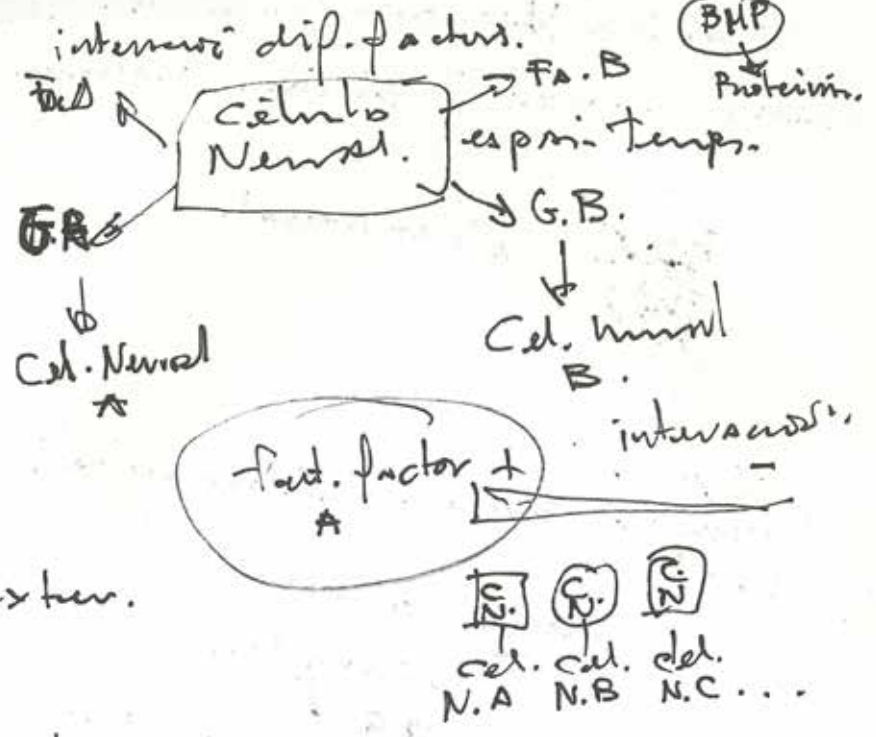 interacció dif. factors.
BMP
Proteïna.
Fa. B
Cèlula
Neural.
espai-temps.
G.B.
Cel. Neural
A
Cel. neural
B.
interacció.
fact. factor +
A
-
C.N. C.N. C.N.
cel. cel. cel.
N.A N.B N.C ...